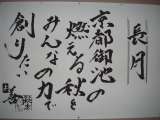 長月
京都御池の
燃える秋を
みんなの力で
創りたい